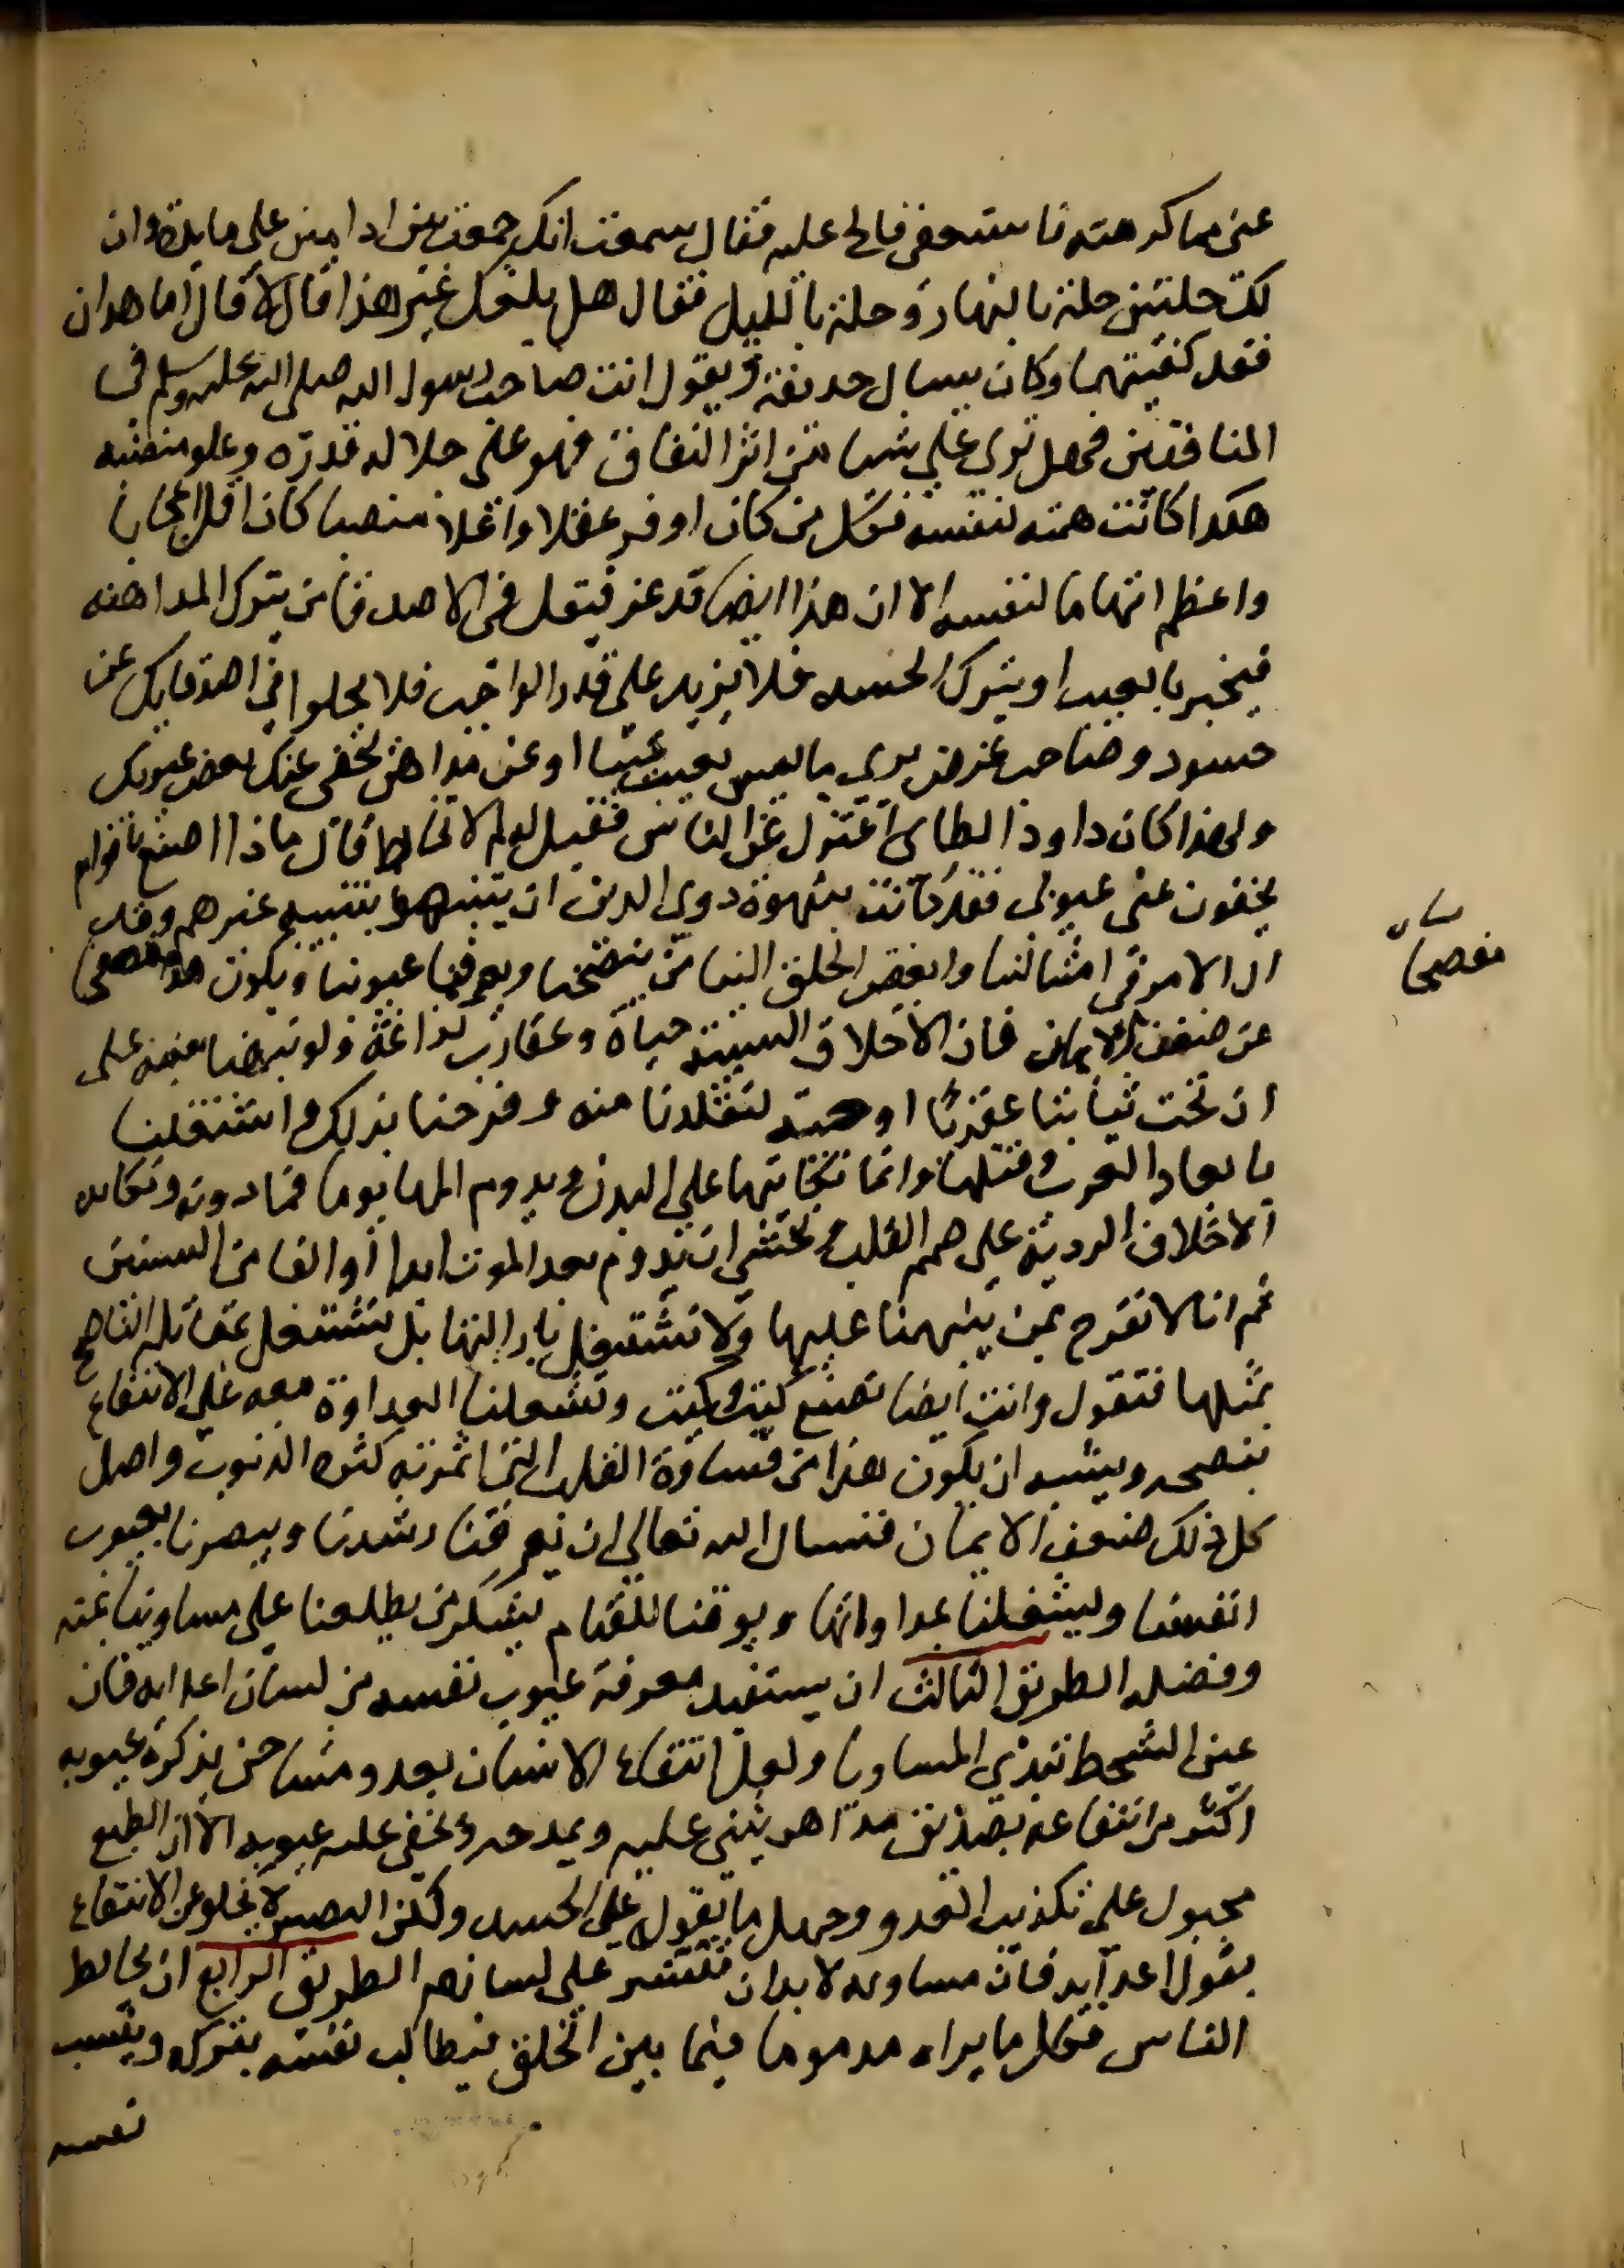 عني مما كرهته فاستعفى فالح عليه فقال سمعت انك جمعت بين ادامين على مايدة وان
لك حلتين حلة بالنهار وحلة بالليل فقال هل بلغك غير هذا قال لا قال اما هذان
فقد كفيتهما وكان يسال حديفة ويقول انت صاحب رسول الله صلى الله عليه وسلم في
المنافقين فهل ترى علي شيا من اثر النفاق فهو على جلالة قدره وعلو منصبه
هكدا كانت همته لنفسه فكل من كان اوفر عقلا واعلا منصبا كان اقل اعجابا
واعظم اتهاما لنفسه الا ان هذا ايضا قد عز فيقل في الاصدقا من يترك المداهنه
فيخبر بالعيب او يترك الحسد فلا يزيد على قدر الواجب فلا يخلوا في اصدقايك عن
حسود وصاحب غرض يرى ما ليس بعيب عيبا او عن مداهن يخفى عنك بعض عيوبك
ولهذا كان داود الطاي اعتزل عن الناس فقيل له لم لا تخالط فقال ماذا اصنع باقوام
يخفون عني عيوبي فقد كانت شهوة دوي الدين ان يتنبهوا بتنبيه غيرهم وقد
ال الامر في امثالنا وابغض الخلق الينا من ينصحنا ويعرفنا عيوبنا ويكون هذا مفصحا
عن ضعف الايمان فان الاخلاق السيية حياة وعقارب لداغة ولو نبهنا منبه على
ان تحت ثيابنا عقربا او حية لتقلدنا منه وفرحنا بذلك واشتغلنا
بابعاد العقرب وقتلها وانما نكايتها على البدن ويدوم المها يوما فما دونه ونكايه
الاخلاق الردية على صميم القلب يخشى ان يدوم بعد الموت ابدا او الفا من السنين
ثم انا لا نفرح بمن ينبهنا عليها ولا نشتغل بازالتها بل نشتغل بمقابلة الناصح
بمثلها فنقول وانت ايضا تصنع كيت وكيت وتشغلنا العداوة معه على الانتفاع
بنصحه ويشبه ان يكون هذا من قساوة القلب التي اثمرته كثرة الذنوب واصل
كل ذلك ضعف الايمان فنسال الله تعالى ان يعرفنا رشدنا ويبصرنا بعيوب
انفسنا ويشغلنا بمداواتها ويوفقنا للقيام بشكر من يطلعنا على مساوينا بمنه
وفضله الطريق الثالث ان يستفيد معرفة عيوب نفسه من لسان اعدايه فان
عين السخط تبدي المساويا ولعل انتفاع الانسان بعدو مشاحن يذكره عيوبه
اكثر من انتفاعه بصديق مداهن يثني عليه ويمدحه ويخفى عليه عيوبه الا ان الطبع
مجبول على تكذيب العدو وحمل ما يقول على الحسد ولكن البصير لا يخلو عن الانتفاع
بقول اعدايه فان مساويه لا بد ان تنتشر على لسانهم الطريق الرابع ان يخالط
الناس فكل ما يراه مدموما فيما بين الخلق فيطالب نفسه بتركه وينسب
نفسه
مفصحا